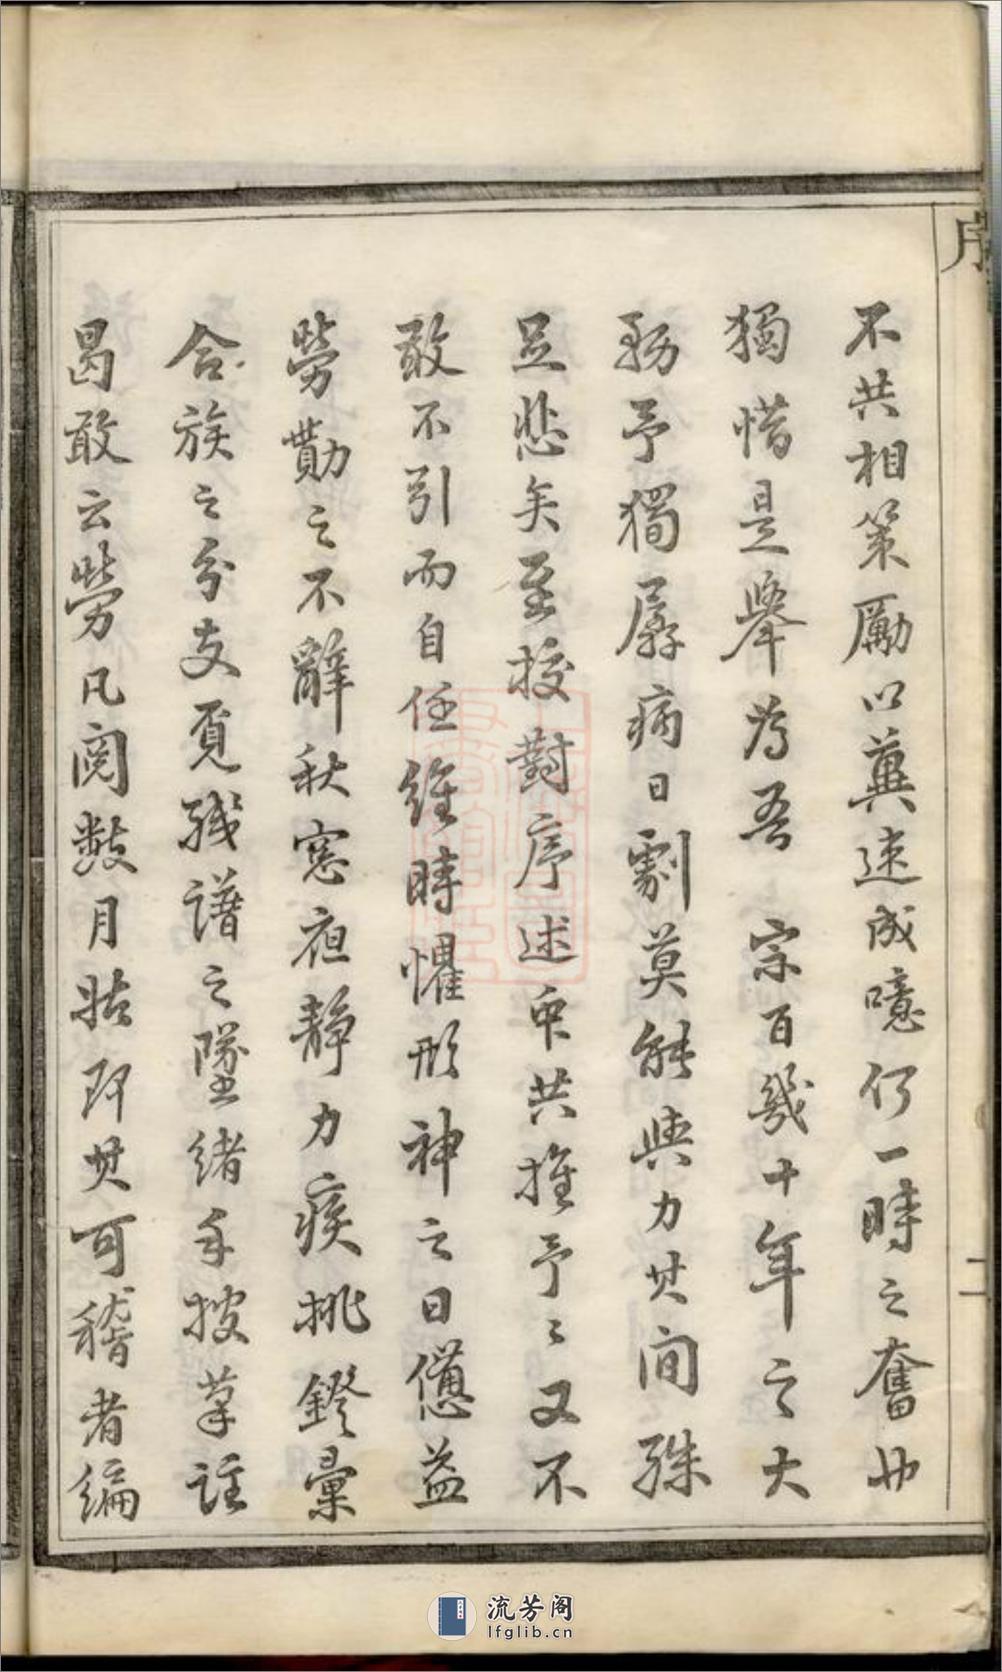 序
不共相策勵以冀速成噫何一時之奮也
獨惜是舉為吾 宗百幾十年之大
務予獨孱病日劇莫能與力其間殊
足悲矣至校對序述衆共推予〻又不
敢不引而自任維時懼形神之日憊益
勞勩之不辭秋窓夜静力疾挑鐙彙
合族之分支覓殘譜之墜緒手披摹註
曷敢云勞凡閱數月始即其可稽者編
二
流芳阁
lfglib.cn